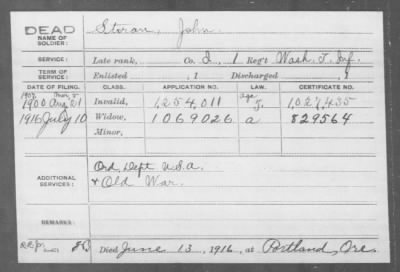 DEAD
NAME OF SOLDIER: Storan, John
SERVICE: Late rank, Co. I, 1 Reg't Wash. T. Inf.
TERM OF SERVICE: Enlisted , 1 Discharged , 1
DATE OF FILING. CLASS. APPLICATION NO. LAW. CERTIFICATE NO.
1900 Aug 21 Invalid, 1,254,011 age J. 1,027,435
1916 July 10 Widow, 1069026 a 829564
Minor,
ADDITIONAL SERVICES: Ord. Dept U.S.A.
& Old War.
REMARKS:
Died June 13, 1916, at Portland, Ore.